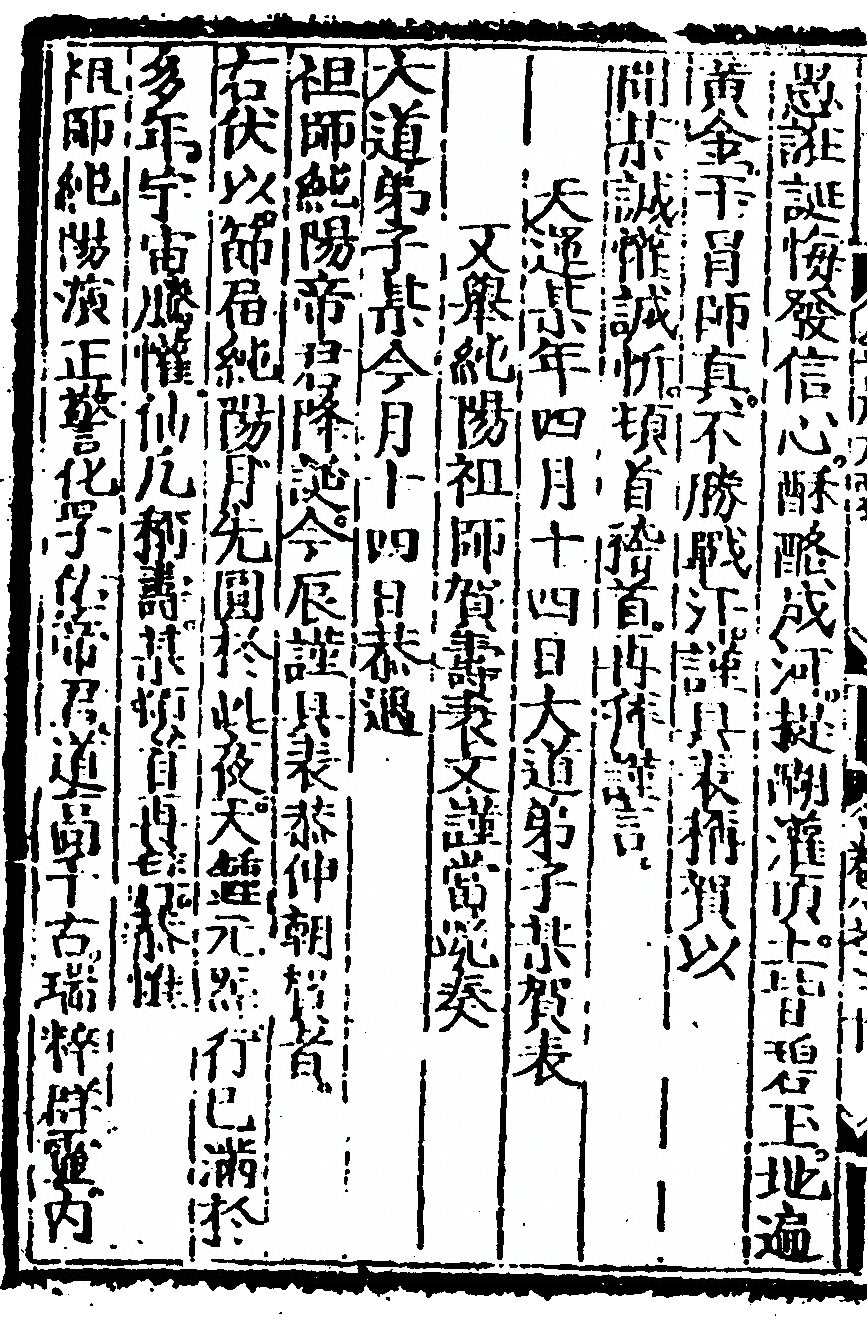 愚誑誕悔發信心。酥酪成河。提醐灌頂。上昔碧玉。地遍
黃金。干冒師真。不勝戰汗。謹具表稱賀以
聞某誠惟誠忻。頓首稽首。再拜謹言。
天運某年四月十四日大道弟子某賀表
又舉純陽祖師賀壽表文謹當宣奏
大道弟子某今月十四日恭遇
祖師純陽帝君降誕。今辰謹具表恭伸朝賀者。
右伏以。節屆純陽月先圓於此夜。大運元熙行已滿於
多年。宇宙騰懽仙凡稱壽。某頓首再拜。恭惟
祖師純陽演正警化孚佑帝君。道高千古。瑞粹群靈。內